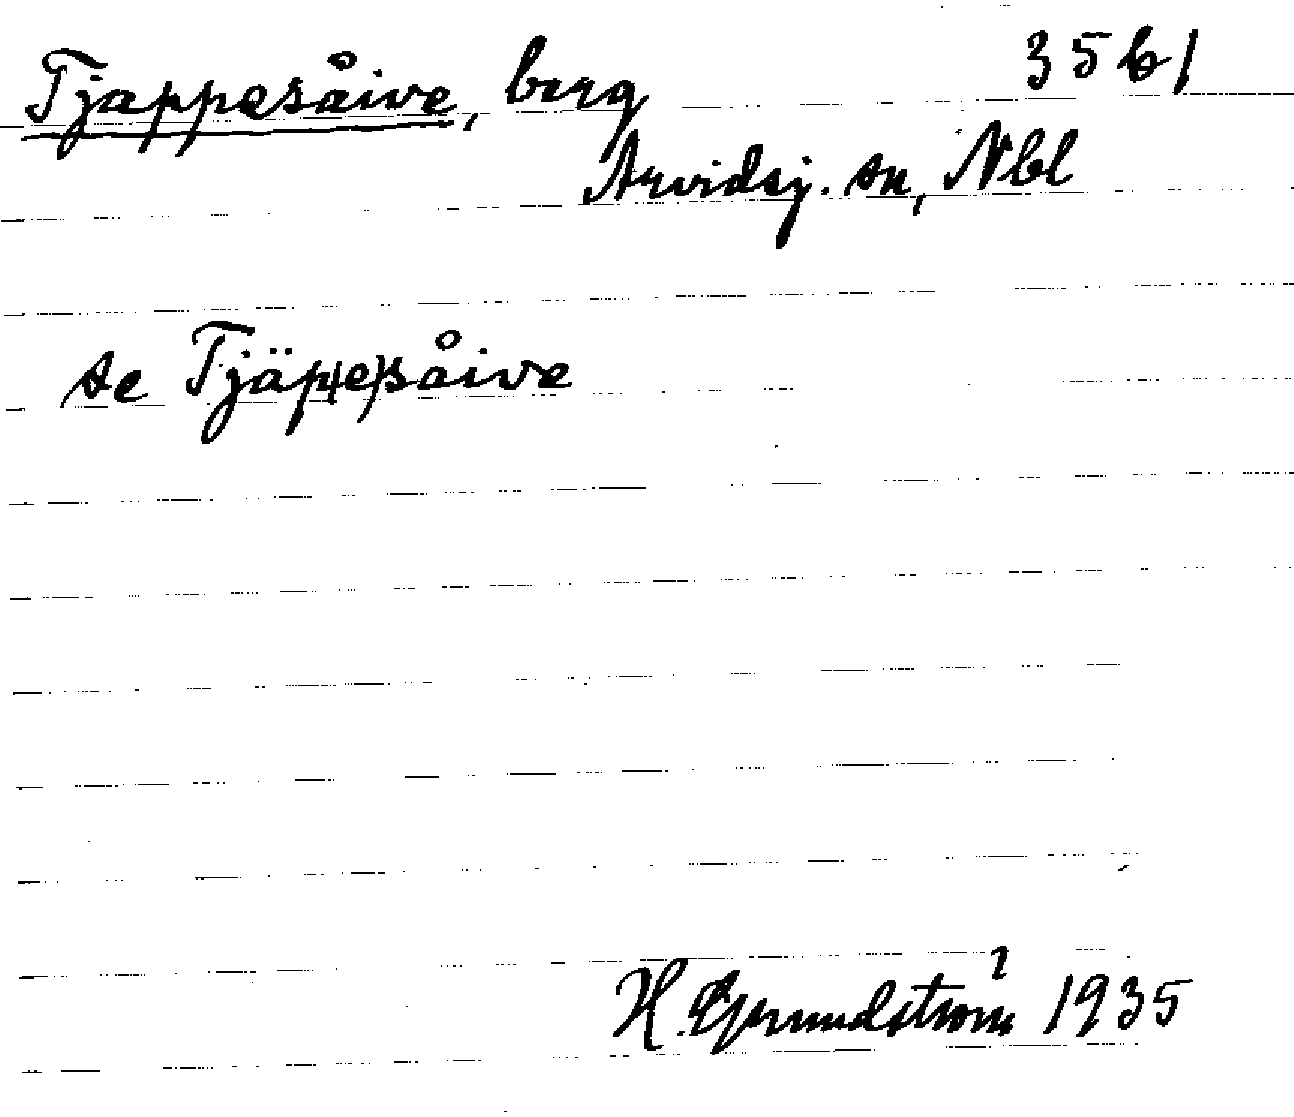 Tjappesåive, berg 35 b 1
Arvidsj. sn, Nbl
se Tjäp(pe)såive
H. Grundström 1935